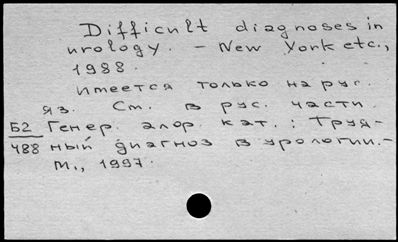 Difficult diagnoses in
urology. - New York etc.,
1988.
имеется только на рус.
яз. См. в рус. части
Б2 Генер. алф. кат. : Труд-
488 ный диагноз в урологии.-
М., 1997.